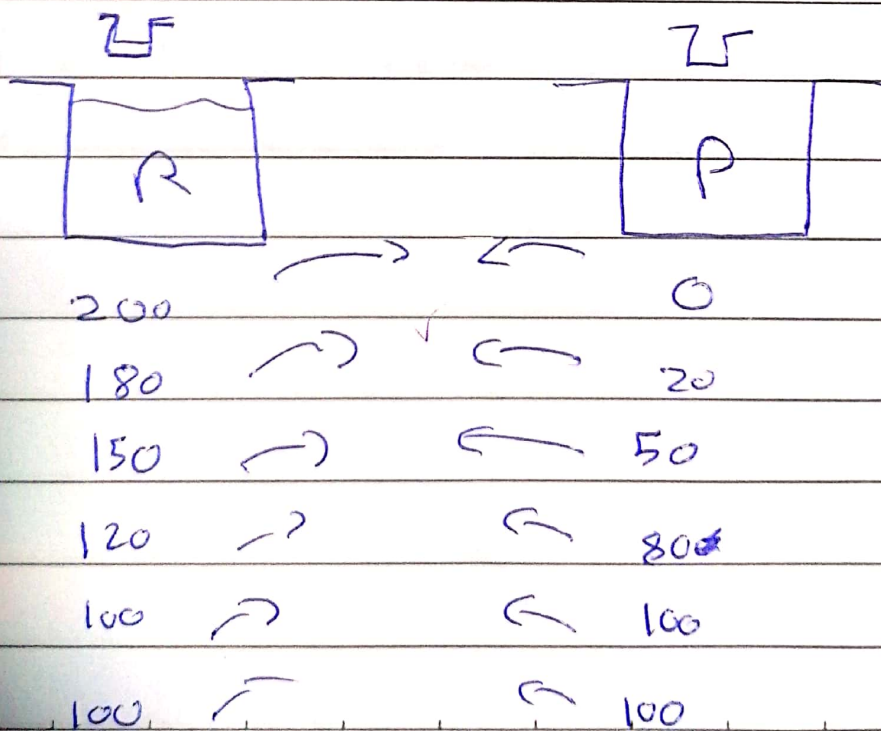 R P
200 0
180 20
150 50
120 80
100 100
100 100